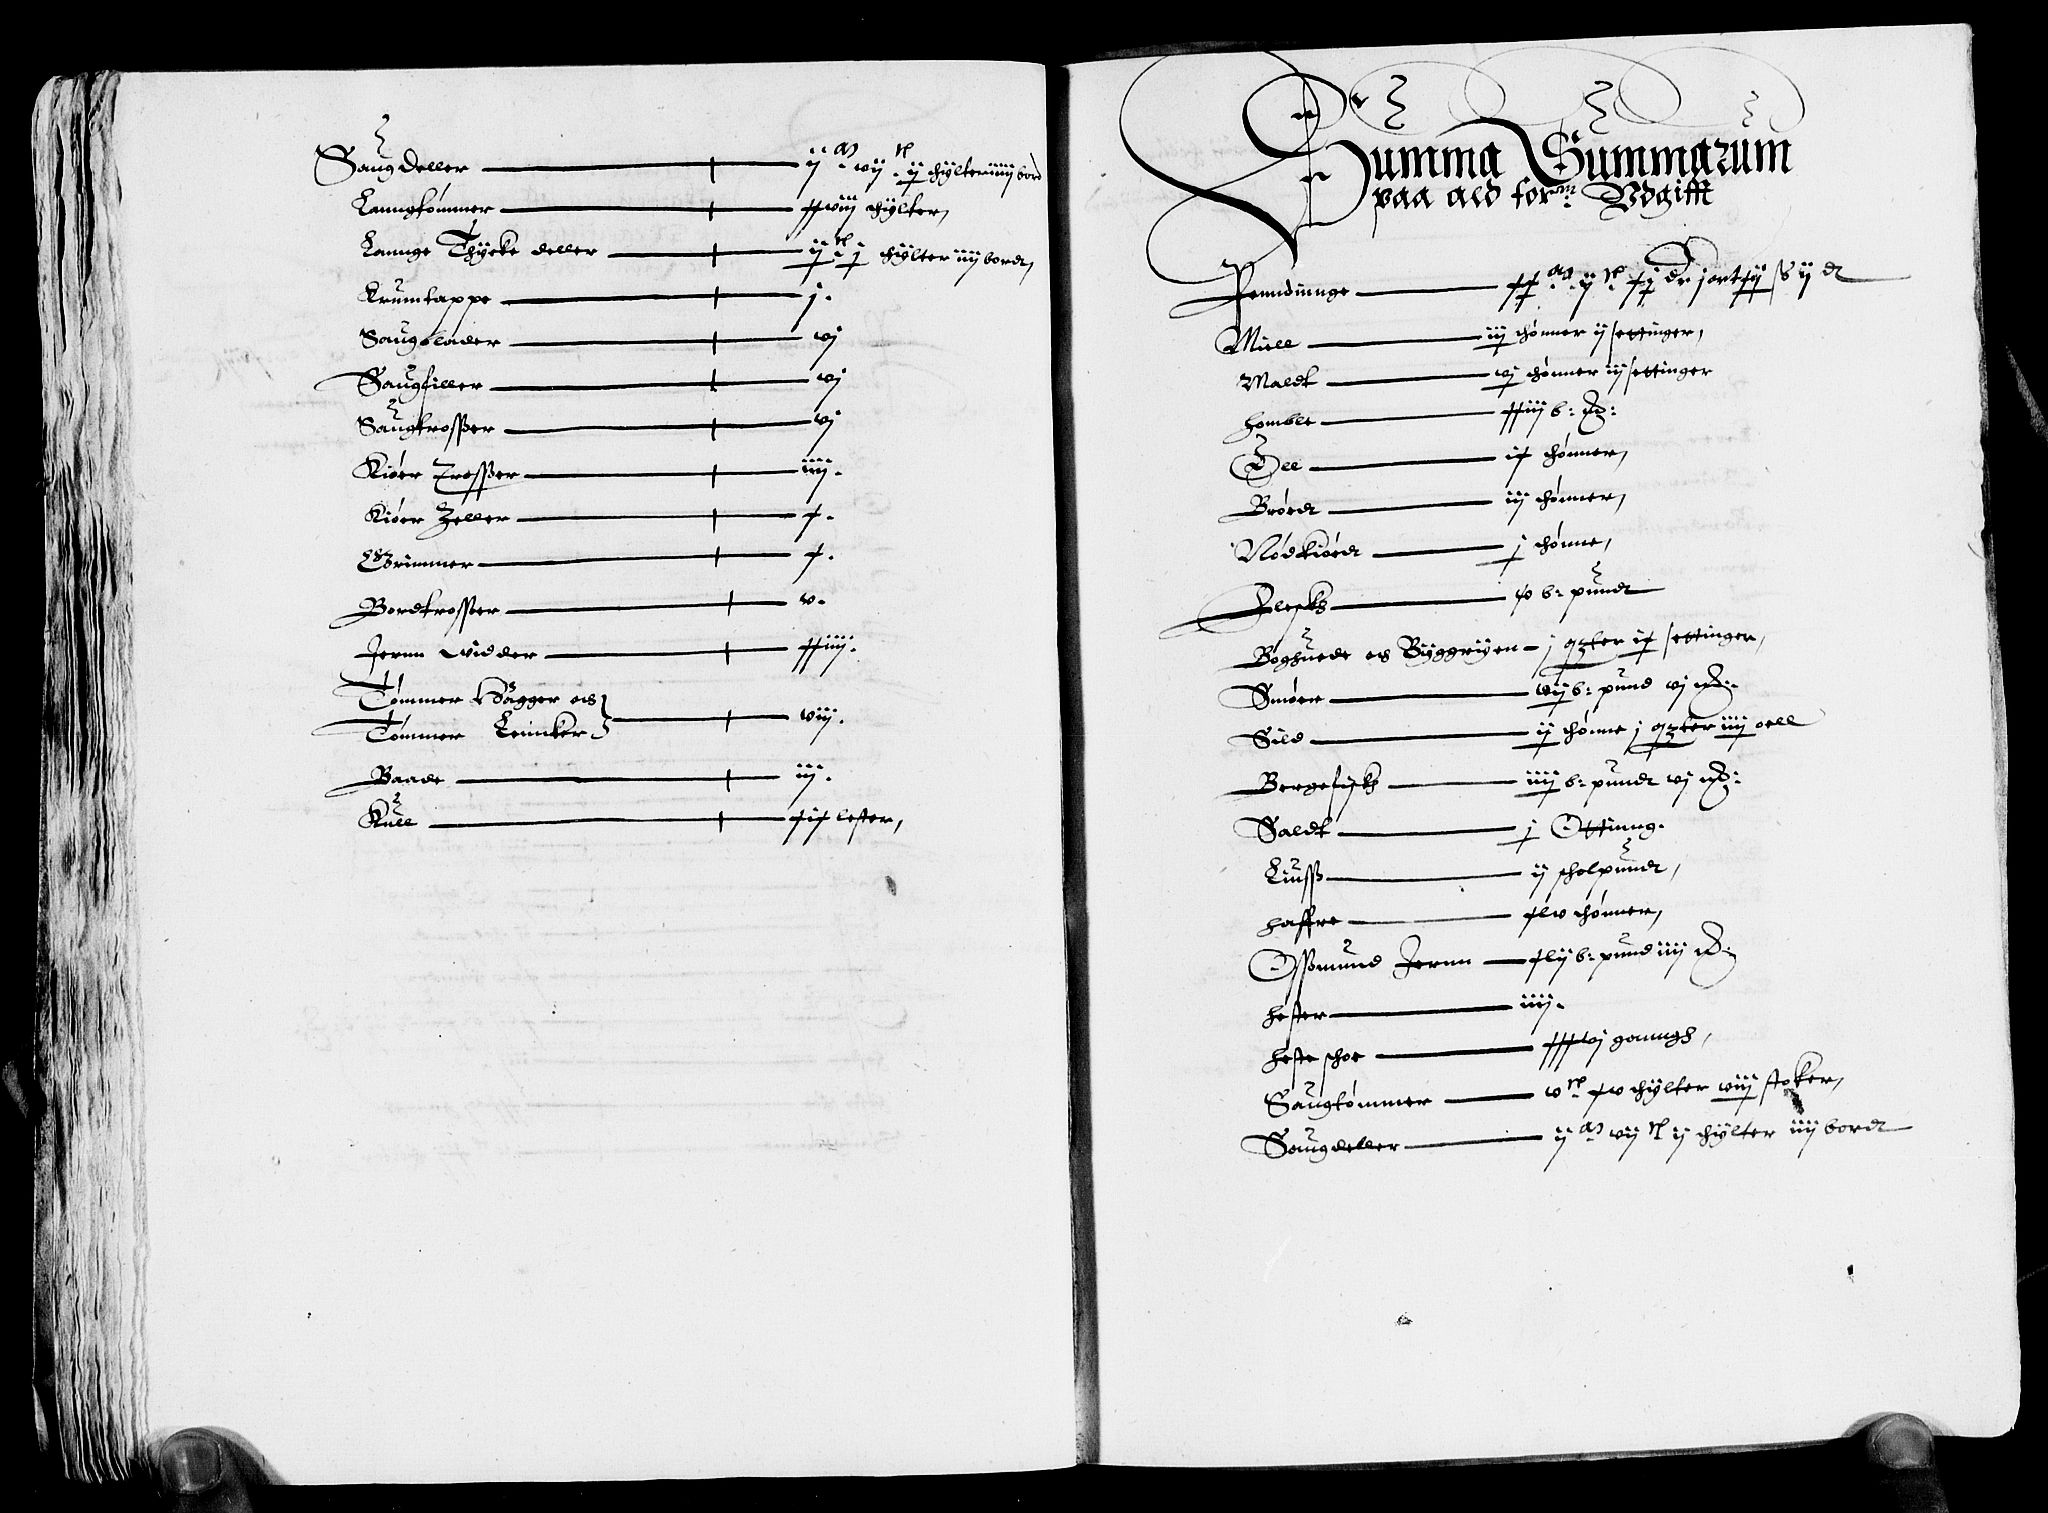 Saug Deller — ij M vij C ij thylter iiij bord
Lanngtømmer — xxviij thylter,
Lannge Thycke deller — ij C j thylter iiij bordt,
Krumtappe — j.
Saugblader — vj
Saugfiller — vj
Saugkrosser — vj
Kiør Trosser — iiij.
Kiør Zeller — x.
Grimmer — x.
Bordkrosser — v.
Jernn Widder — xxiiij.
Tømmer Hagger och
Tømmer Lencker — viij.
Baade — iij.
Kull — xix lester,
Summa Summarum
paa ald for:ne Vdgifft
Penndinnge — xx M ij C xj dr j ort xij ß ij d
Miell — iij thønner ij settinger,
Maldt — vj thønner iij settinger
Homble — xxiij b: m:
Øll — ix thønner,
Brødt — iij thønner,
Nødkiødt — j thønne,
Flesck — xv b: pundt
Boghuede och Byggryen — j qrter ix settinger,
Smør — vij b: pund vj m:
Sild — ij thønne j qrter iiij oell
Bergefisck — iiij b: pundt vj m:
Saldt — j Ottinng.
Liuss — ij skolpundt,
Haffre — xlv thønner,
Ossmund Jernn — xlij b: pund iiij m:
Hester — iiij.
Heste schoe — xxxvj ganngh,
Saugtømmer — v C xv thylter viij stocker,
Saugdeller — ij M vij C ij thylter iiij bordt